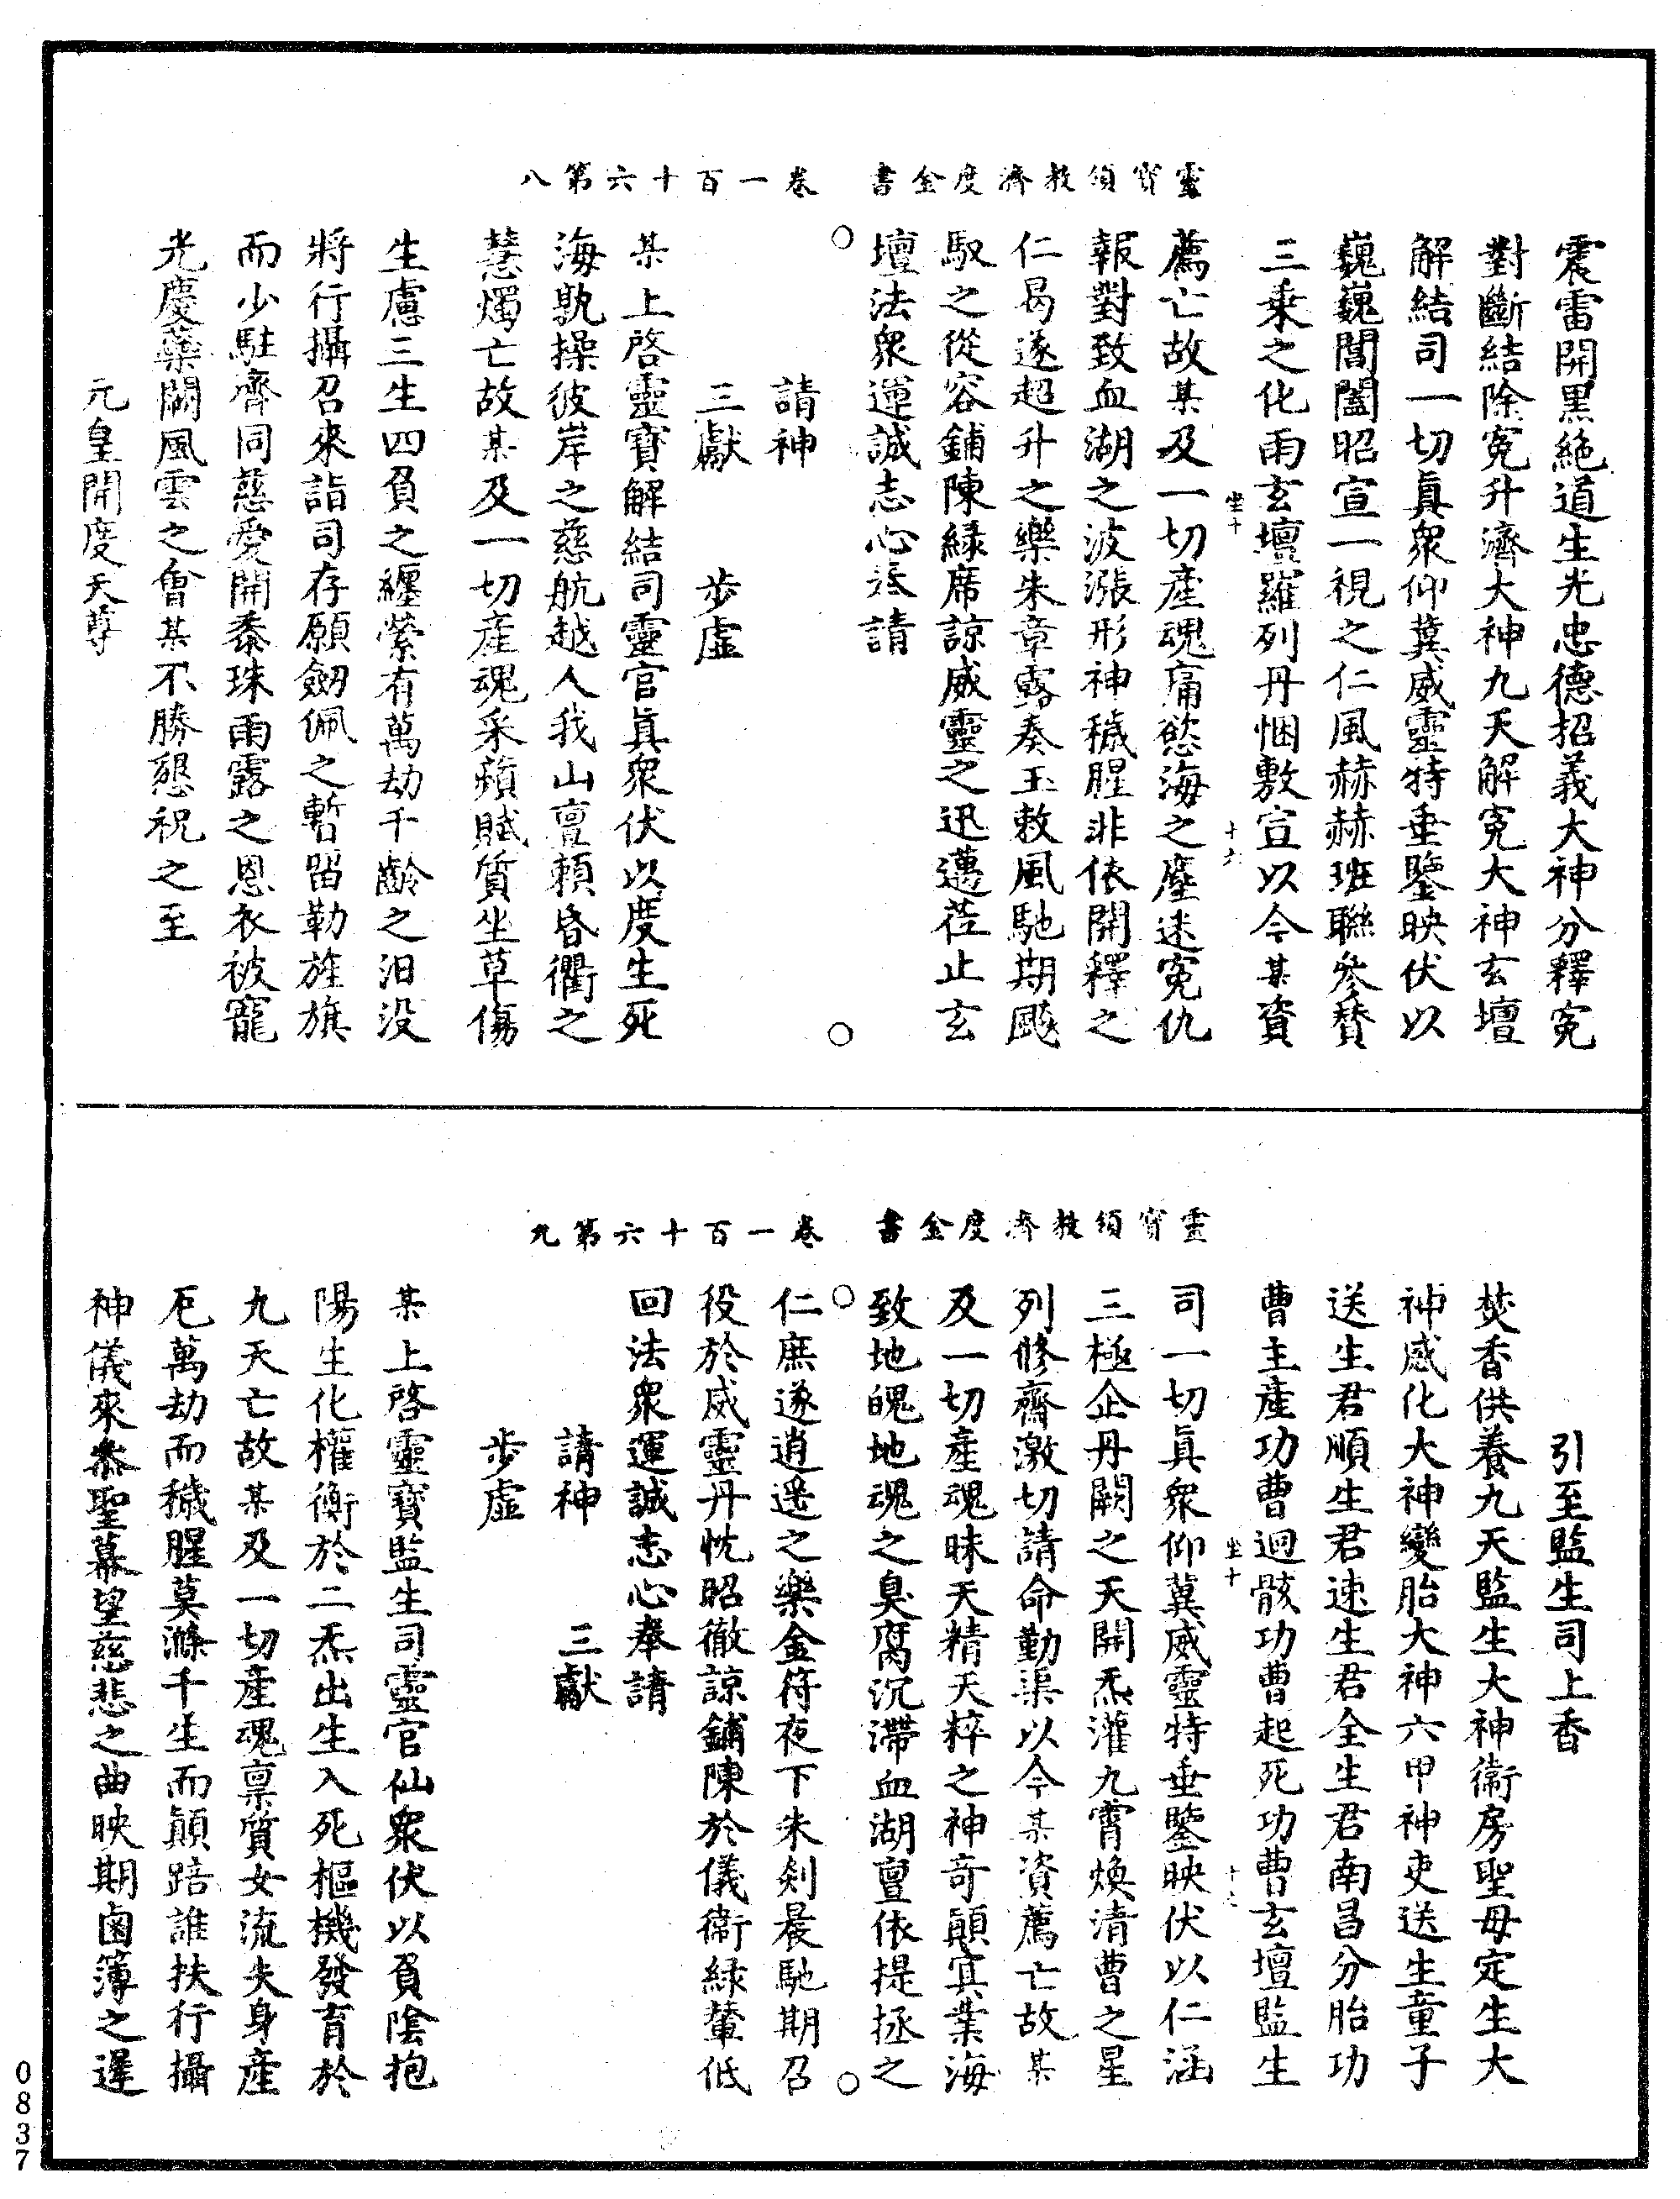 靈寶領教濟度金書 卷一百十六第八
震雷開黑絶道生光忠德招義大神分釋寃
對斷結除寃升濟大神九天解寃大神玄壇
解結司一切眞衆仰冀威靈特垂鑒映伏以
巍巍閶闔昭宣一視之仁風赫赫班聯參賛
三乘之化雨玄壇羅列丹悃敷宣以今某資
坐十 十六
薦亡故某及一切産魂痛慾海之塵迷寃仇
報對致血湖之波漲形神穢腥非依開釋之
仁曷遂超升之樂朱章露奏玉敕風馳期飈
馭之從容鋪陳緑席諒威靈之迅邁莅止玄
壇法衆運誠志心奉請
請神
三獻 步虚
某上啓靈寶解結司靈官眞衆伏以度生死
海孰操彼岸之慈航越人我山亶頼昏衢之
慧燭亡故某及一切産魂采蘋賦質坐草傷
生慮三生四負之纏縈有萬劫千齡之汨没
將行攝召來詣司存願劒佩之暫留勒旌旗
而少駐齊同慈愛開黍珠雨露之恩衣被寵
光慶藥闕風雲之會某不勝懇祝之至
元皇開度天尊
靈寶領教濟度金書 卷一百十六第九
引至監生司上香
焚香供養九天監生大神衛房聖母定生大
神感化大神變胎大神六甲神吏送生童子
送生君順生君速生君全生君南昌分胎功
曹主產功曹迴骸功曹起死功曹玄壇監生
坐十
司一切眞衆仰冀威靈特垂鑒映伏以仁涵
三極企丹闕之天開炁灌九霄煥清曹之星
列修齋激切請命勤渠以今某資薦亡故某
及一切產魂昧天精天粹之神奇顚冥業海
致地魄地魂之臭腐沉滯血湖亶依提拯之
仁庶遂逍遥之樂金符夜下朱剡晨馳期召
役於威靈丹忱昭徹諒鋪陳於儀衛緑輦低
回法衆運誠志心奉請
請神 三獻
步虚
某上啓靈寶監生司靈官仙衆伏以負陰抱
陽生化權衡於二炁出生入死樞機發育於
九天亡故某及一切產魂禀質女流失身產
厄萬劫而穢腥莫滌千生而顚踣誰扶行攝
神儀來叅聖幕望慈悲之曲映期鹵簿之遲
0837